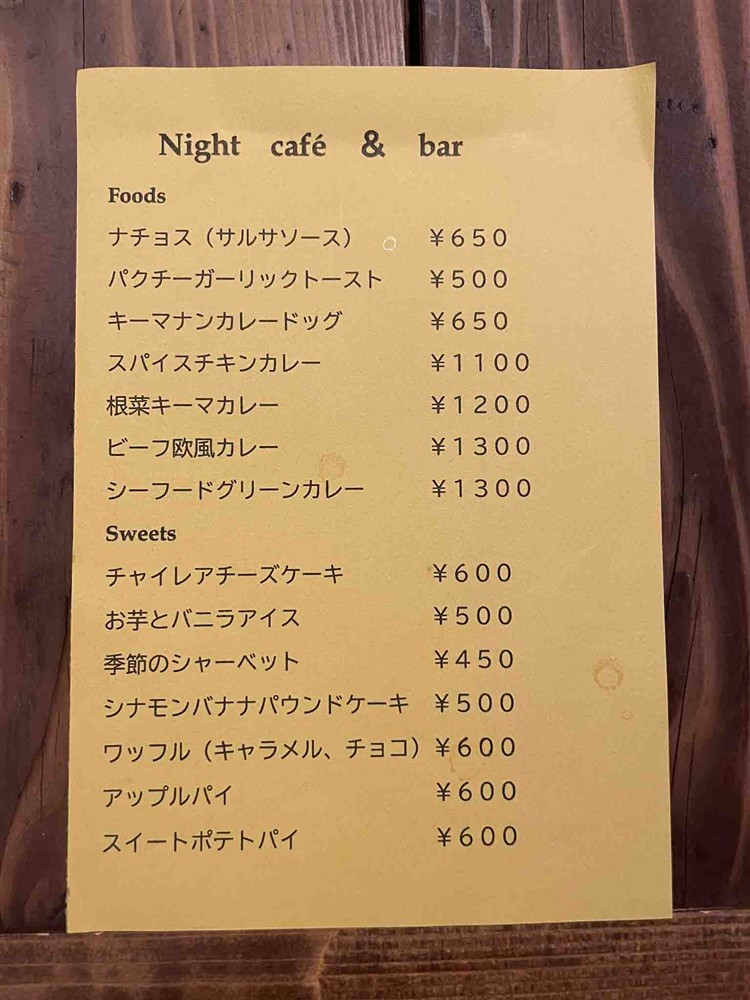 Night café & bar
Foods
ナチョス（サルサソース） ￥６５０
パクチーガーリックトースト ￥５００
キーマナンカレードッグ ￥６５０
スパイスチキンカレー ￥１１００
根菜キーマカレー ￥１２００
ビーフ欧風カレー ￥１３００
シーフードグリーンカレー ￥１３００
Sweets
チャイレアチーズケーキ ￥６００
お芋とバニラアイス ￥５００
季節のシャーベット ￥４５０
シナモンバナナパウンドケーキ ￥５００
ワッフル（キャラメル、チョコ） ￥６００
アップルパイ ￥６００
スイートポテトパイ ￥６００